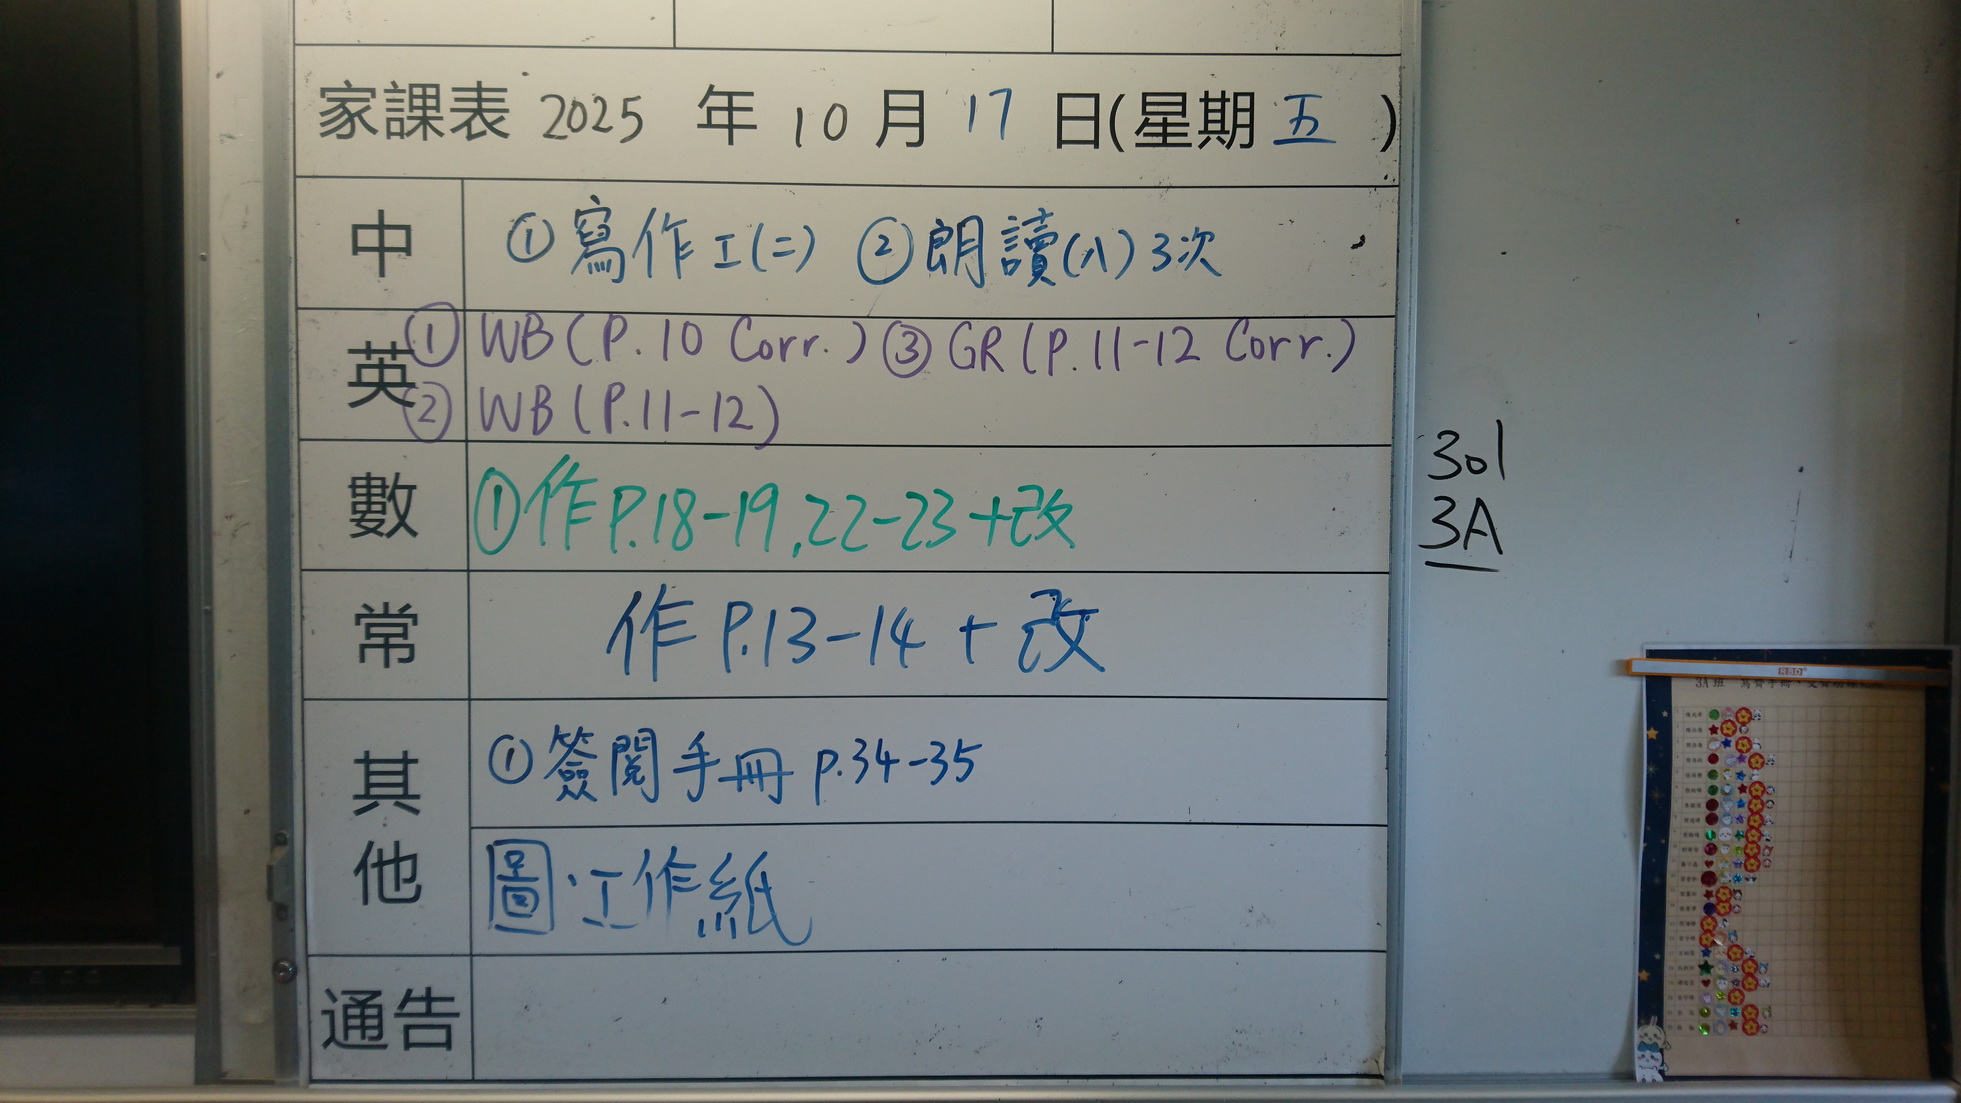 家課表 2025 年 10 月 17 日(星期 五 )
中 ①寫作工(二) ②朗讀(八)3次
英 ① WB(P.10 Corr.) ③ GR(P.11-12 Corr.)
② WB(P.11-12)
數 ①作P.18-19,22-23+改
常 作 P.13-14 + 改
其他 ①簽閱手冊 p.34-35
圖·工作紙
通告
301
3A
3A班